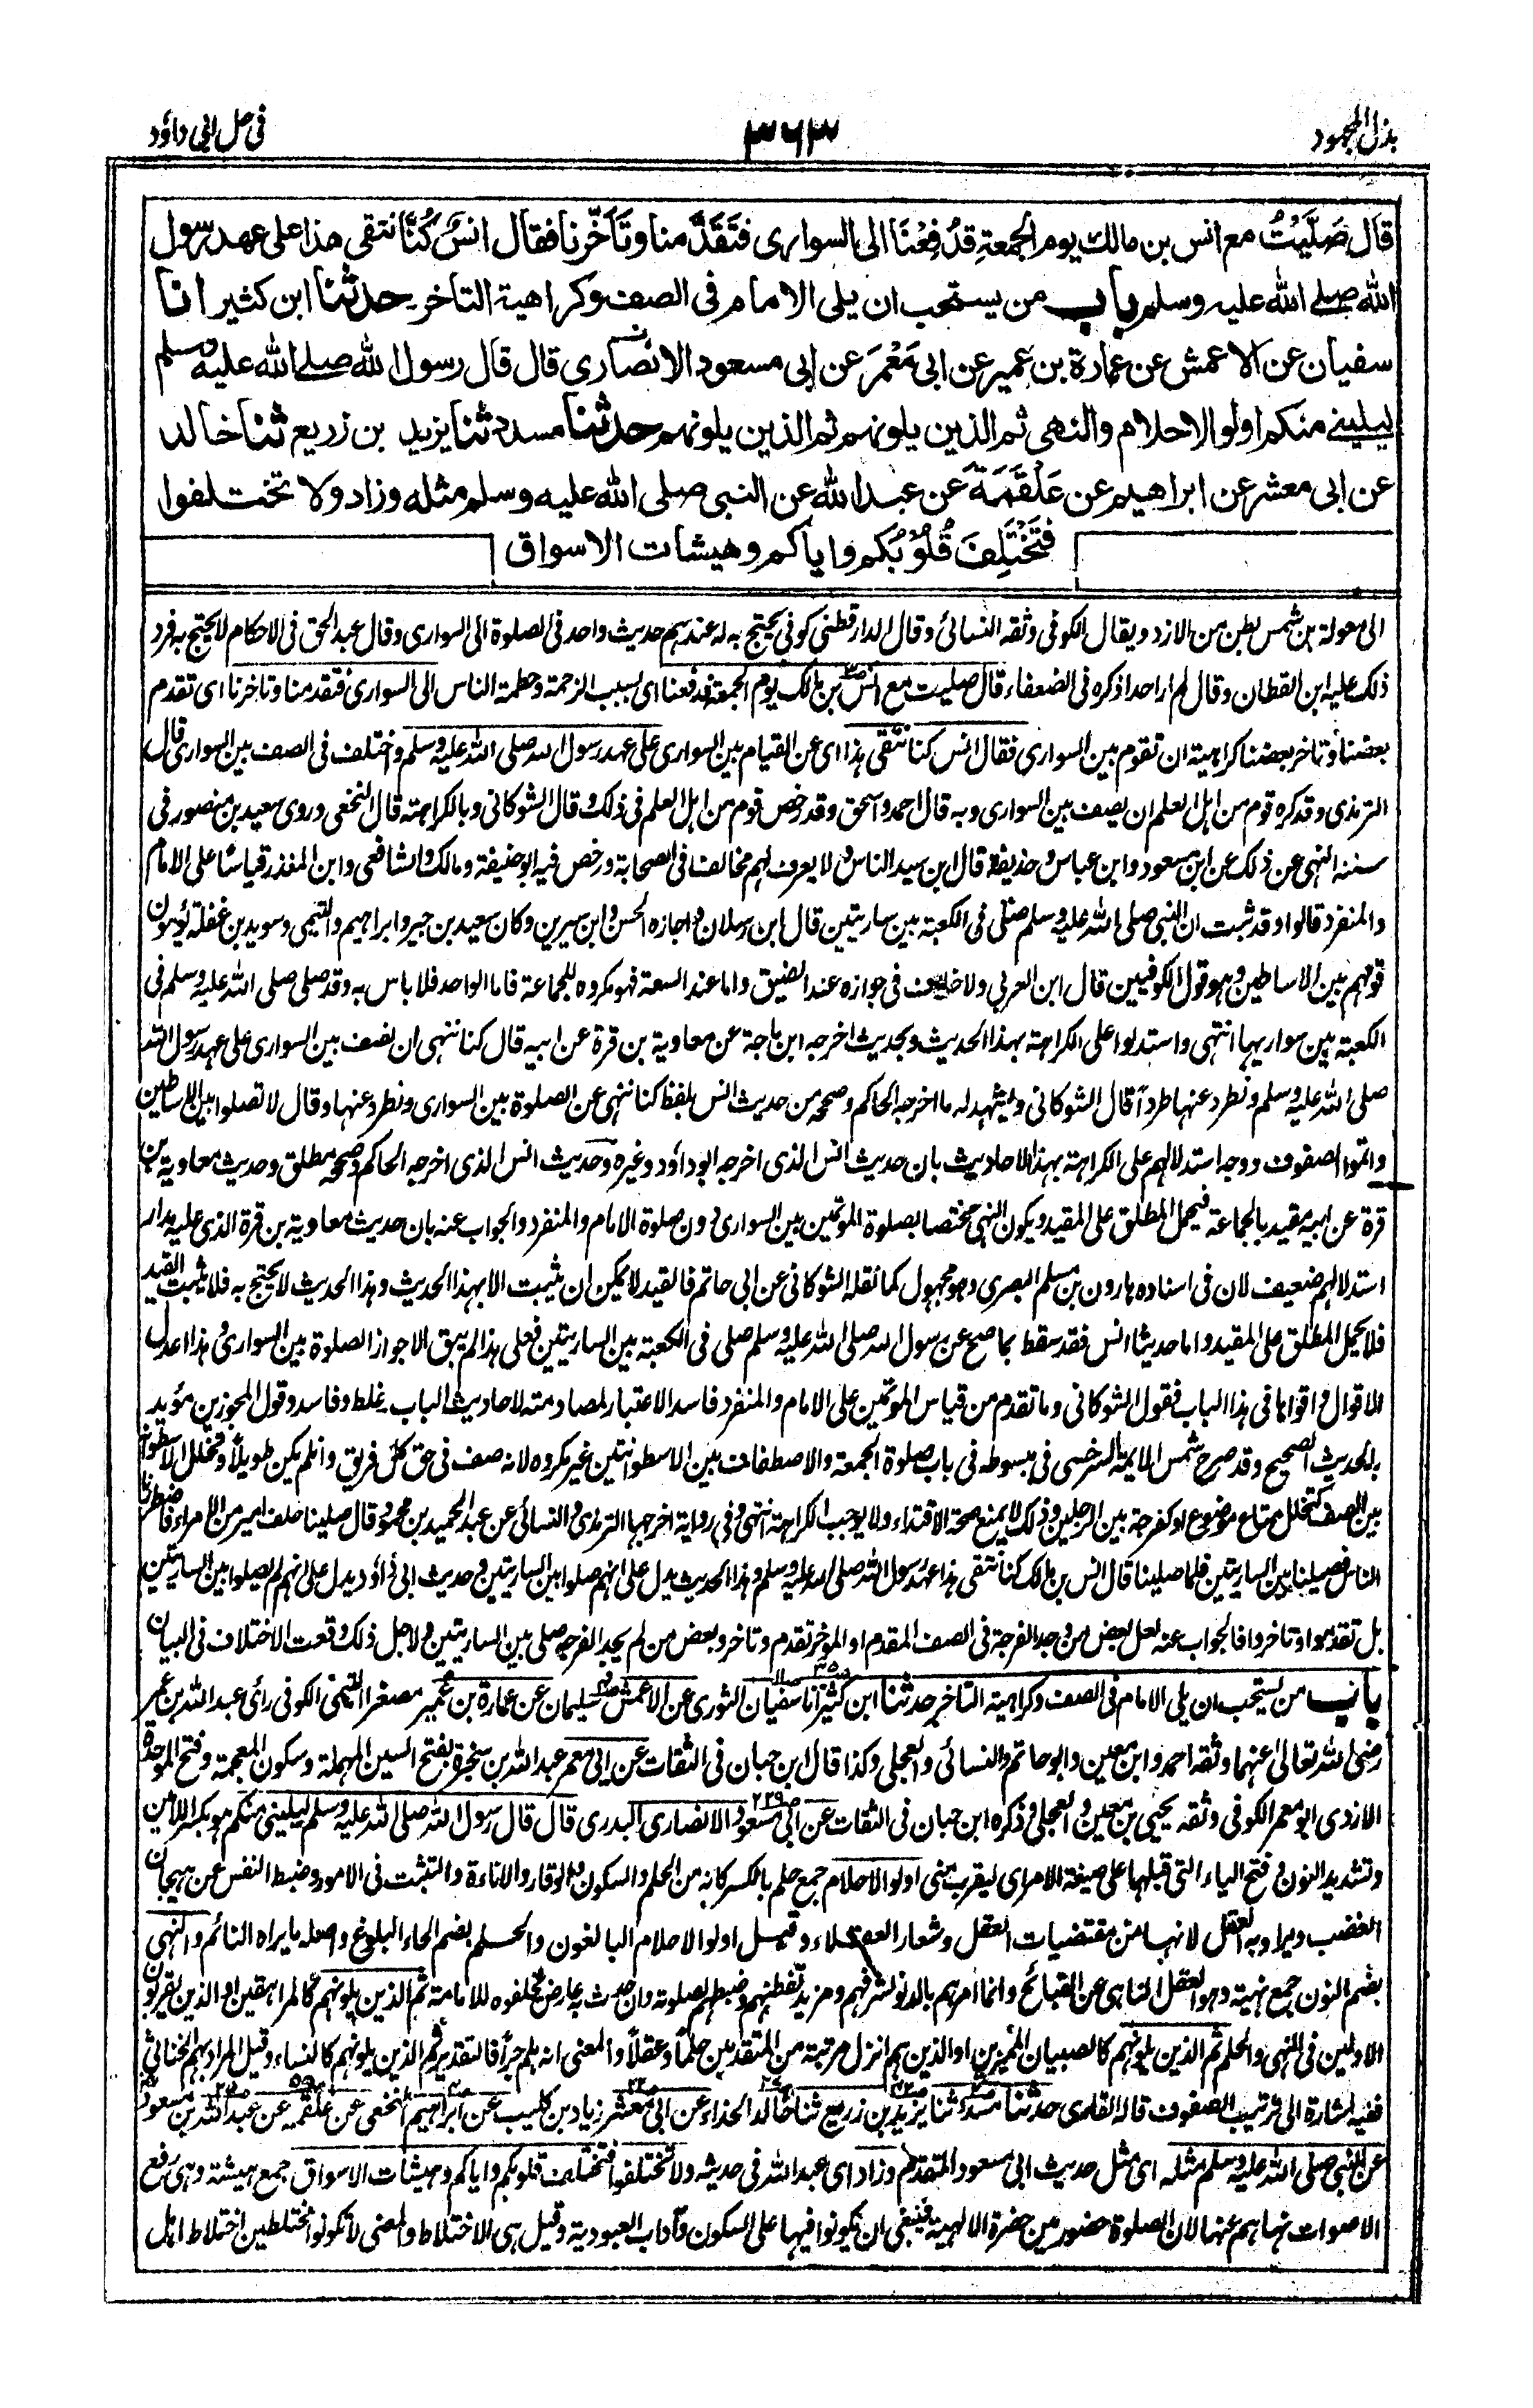 بذل المجهود
٣٦٣
فى حل ابى داؤد
قال صَلَّيْتُ مع انس بن مالك يوم الجمعةِ فدُفِعْنَا الى السوارى فتَقَدَّمنا وتَأَخّرنا فقال انسٌ كُنَّا نتقى هذا على عهد رسول
الله صلے الله عليه وسلم باب من يستحب ان يلى الامام فى الصف وكراهية التاخر حدثنا ابن كثير انا
سفيان عن الاعمش عن عمارة بن عمير عن ابى مَعْمَرَ عن ابى مسعود الانصارى قال قال رسول الله صلے الله عليه وسلم
ليلينے منكم اولو الاحلام والنهى ثم الذين يلونهم ثم الذين يلونهم حدثنا مسدد ثنا يزيد بن زريع ثنا خالد
عن ابى معشر عن ابراهيم عن عَلْقَمَةَ عن عبد الله عن النبى صلى الله عليه وسلم مثله وزاد ولا تختلفوا
فتَخْتَلِفَ قُلُوْبُكم واياكم وهيشات الاسواق
الى معولة بن شمس بطن من الازد ويقال الكوفى وثقه النسائى وقال الدارقطنى كوفى يحتج به له عندهم حديث واحد فى الصلوة الى السوارى وقال عبد الحق فى الاحكام لا يحتج به فرد
ذلك عليه ابن القطان وقال لم ار احدا ذكره فى الضعفاء قال صليت مع انس بن مالك يوم الجمعة فدفعنا اى بسبب الزحمة وحطمة الناس الى السوارى فتقدمنا وتاخرنا اى تقدم
بعضنا وتاخر بعضنا كراهية ان نقوم بين السوارى فقال انس كنا نتقى هذا اى عن القيام بين السوارى على عهد رسول الله صلى الله عليه وسلم واختلف فى الصف بين السوارى قال
الترمذى وقد كره قوم من اهل العلم ان يصف بين السوارى وبه قال احمد واسحق وقد رخص قوم من اهل العلم فى ذلك وقال الشوكانى وبالكراهة قال النخعى وروى سعيد بن منصور فى
سننه النهى عن ذلك عن ابن مسعود وابن عباس وحذيفة قال ابن سيد الناس ولا يعرف لهم مخالف فى الصحابة ورخص فيه ابو حنيفة ومالك والشافعى وابن المنذر قياسا على الامام
والمنفرد قالوا وقد ثبت ان النبى صلى الله عليه وسلم صلى فى الكعبة بين ساريتين قال ابن رسلان واجازه الحسن وابن سيرين وكان سعيد بن جبير وابراهيم والتيمى وسويد بن غفلة يؤمون
قومهم بين الاساطين وهو قول الكوفيين قال ابن العربى ولا خلاف فى جوازه عند الضيق واما عند السعة فهو مكروه للجماعة فاما الواحد فلا باس به وقد صلى صلى الله عليه وسلم فى
الكعبة بين سواريها انتهى واستدلوا على الكراهة بهذا الحديث وبحديث اخرجه ابن ماجة عن معاوية بن قرة عن ابيه قال كنا ننهى ان نصف بين السوارى على عهد رسول الله
صلى الله عليه وسلم ونطرد عنها طردا قال الشوكانى ويشهد له ما اخرجه الحاكم وصححه من حديث انس بلفظ كنا ننهى عن الصلوة بين السوارى ونطرد عنها وقال لا تصلوا بين الاساطين
واتموا الصفوف ووجه استدلالهم على الكراهة بهذه الاحاديث بان حديث انس الذى اخرجه ابو داؤد وغيره وحديث انس الذى اخرجه الحاكم وصححه مطلق وحديث معاوية بن
قرة عن ابيه مقيد بالجماعة فيحمل المطلق على المقيد ويكون النهى مختصا بصلوة المؤتمين بين السوارى دون صلوة الامام والمنفرد والجواب عنه بان حديث معاوية بن قرة الذى عليه مدار
استدلالهم ضعيف لان فى اسناده هارون بن مسلم البصرى وهو مجهول كما نقله الشوكانى عن ابى حاتم فالقيد لا يمكن ان يثبت الا بهذا الحديث وهذا الحديث لا يحتج به فلا يثبت القيد
فلا يحمل المطلق على المقيد واما حديثا انس فقد سقط بما صح عن رسول الله صلى الله عليه وسلم صلى فى الكعبة بين الساريتين فعلى هذا لم يبق الا جواز الصلوة بين السوارى وهذا اعدل
الاقوال واقواها فى هذا الباب فقول الشوكانى وما تقدم من قياس المؤتمين على الامام والمنفرد فاسد الاعتبار لمصادمته لاحاديث الباب غلط وفاسد وقول المجوزين مؤيد
بالحديث الصحيح وقد صرح شمس الائمة السرخسى فى مبسوطه فى باب صلوة الجمعة والاصطفاف بين الاسطوانتين غير مكروه لانه صف فى حق كل فريق وان لم يكن طويلا وتخلل الاسطوانة
بين الصف كتخلل متاع موضوع او كفرجة بين الرجلين وذلك لا يمنع صحة الاقتداء ولا يوجب الكراهة انتهى وفى رواية اخرجها الترمذى والنسائى عن عبد الحميد بن محمود قال صلينا خلف امير من الامراء فاضطرنا
الناس فصلينا بين الساريتين فلما صلينا قال انس بن مالك كنا نتقى هذا على عهد رسول الله صلى الله عليه وسلم وهذا الحديث يدل على انهم صلوا بين الساريتين وحديث ابى داؤد يدل على انهم لم يصلوا بين الساريتين
بل تقدموا وتاخروا فالجواب عنه لعل بعض من وجد الفرجة فى الصف المقدم او المؤخر تقدم وتاخر وبعض من لم يجد الفرجة صلى بين الساريتين ولاجل ذلك وقعت الاختلاف فى البيان
باب من يستحب ان يلى الامام فى الصف وكراهية التاخر حدثنا ابن كثير انا سفيان الثورى عن الاعمش سليمان عن عمارة بن عمير مصغرا التيمى الكوفى رأى عبد الله بن عمر
رضى الله تعالى عنهما وثقه احمد وابن معين وابو حاتم والنسائى والعجلى وكذا قال ابن حبان فى الثقات عن ابى معمر عبد الله بن سخبرة بفتح السين المهملة وسكون المعجمة وفتح الموحدة
الازدى ابو معمر الكوفى وثقه يحيى بن معين والعجلى وذكره ابن حبان فى الثقات عن ابى مسعود الانصارى البدرى قال قال رسول الله صلى الله عليه وسلم ليلينى منكم هو بكسر اللامين
وتشديد النون وفتح الياء التى قبلها على صيغة الامر اى ليقرب منى اولو الاحلام جمع حلم بالكسر كانه من الحلم والسكون والوقار والاناءة والتثبت فى الامور وضبط النفس عن هيجان
الغضب ويراد به العقل لانها من مقتضيات العقل وشعار العقلاء وقيل اولو الاحلام البالغون والحلم بضم الحاء البلوغ واصله ما يراه النائم والنهى
بضم النون جمع نهية وهو العقل الناهى عن القبائح وانما امرهم بالدنو لشرفهم ومزيد تفطنهم وضبطهم لصلوته وان حدث به عارض يخلفوه للامامة ثم الذين يلونهم كالمراهقين او الذين يقربون
الاولين فى النهى والحلم ثم الذين يلونهم كالصبيان المميزين او الذين هم انزل مرتبة من المتقدمين حلما وعقلا والمعنى انه هلم جرا فالتقدير ثم الذين يلونهم كالنساء وقيل المراد بهم الخناثى
ففيه اشارة الى ترتيب الصفوف قاله القارى حدثنا مسدد ثنا يزيد بن زريع ثنا خالد الحذاء عن ابى معشر زياد بن كليب عن ابراهيم النخعى عن علقمة عن عبد الله بن مسعود
عن النبى صلى الله عليه وسلم مثله اى مثل حديث ابى مسعود المتقدم وزاد اى عبد الله فى حديثه ولا تختلفوا فتختلف قلوبكم واياكم وهيشات الاسواق جمع هيشة وهى رفع
الاصوات نهاهم عنها لان الصلوة حضور بين حضرة الالهية فينبغى ان يكونوا فيها على السكون وآداب العبودية وقيل هى الاختلاط والمعنى لا تكونوا مختلطين اختلاط اهل